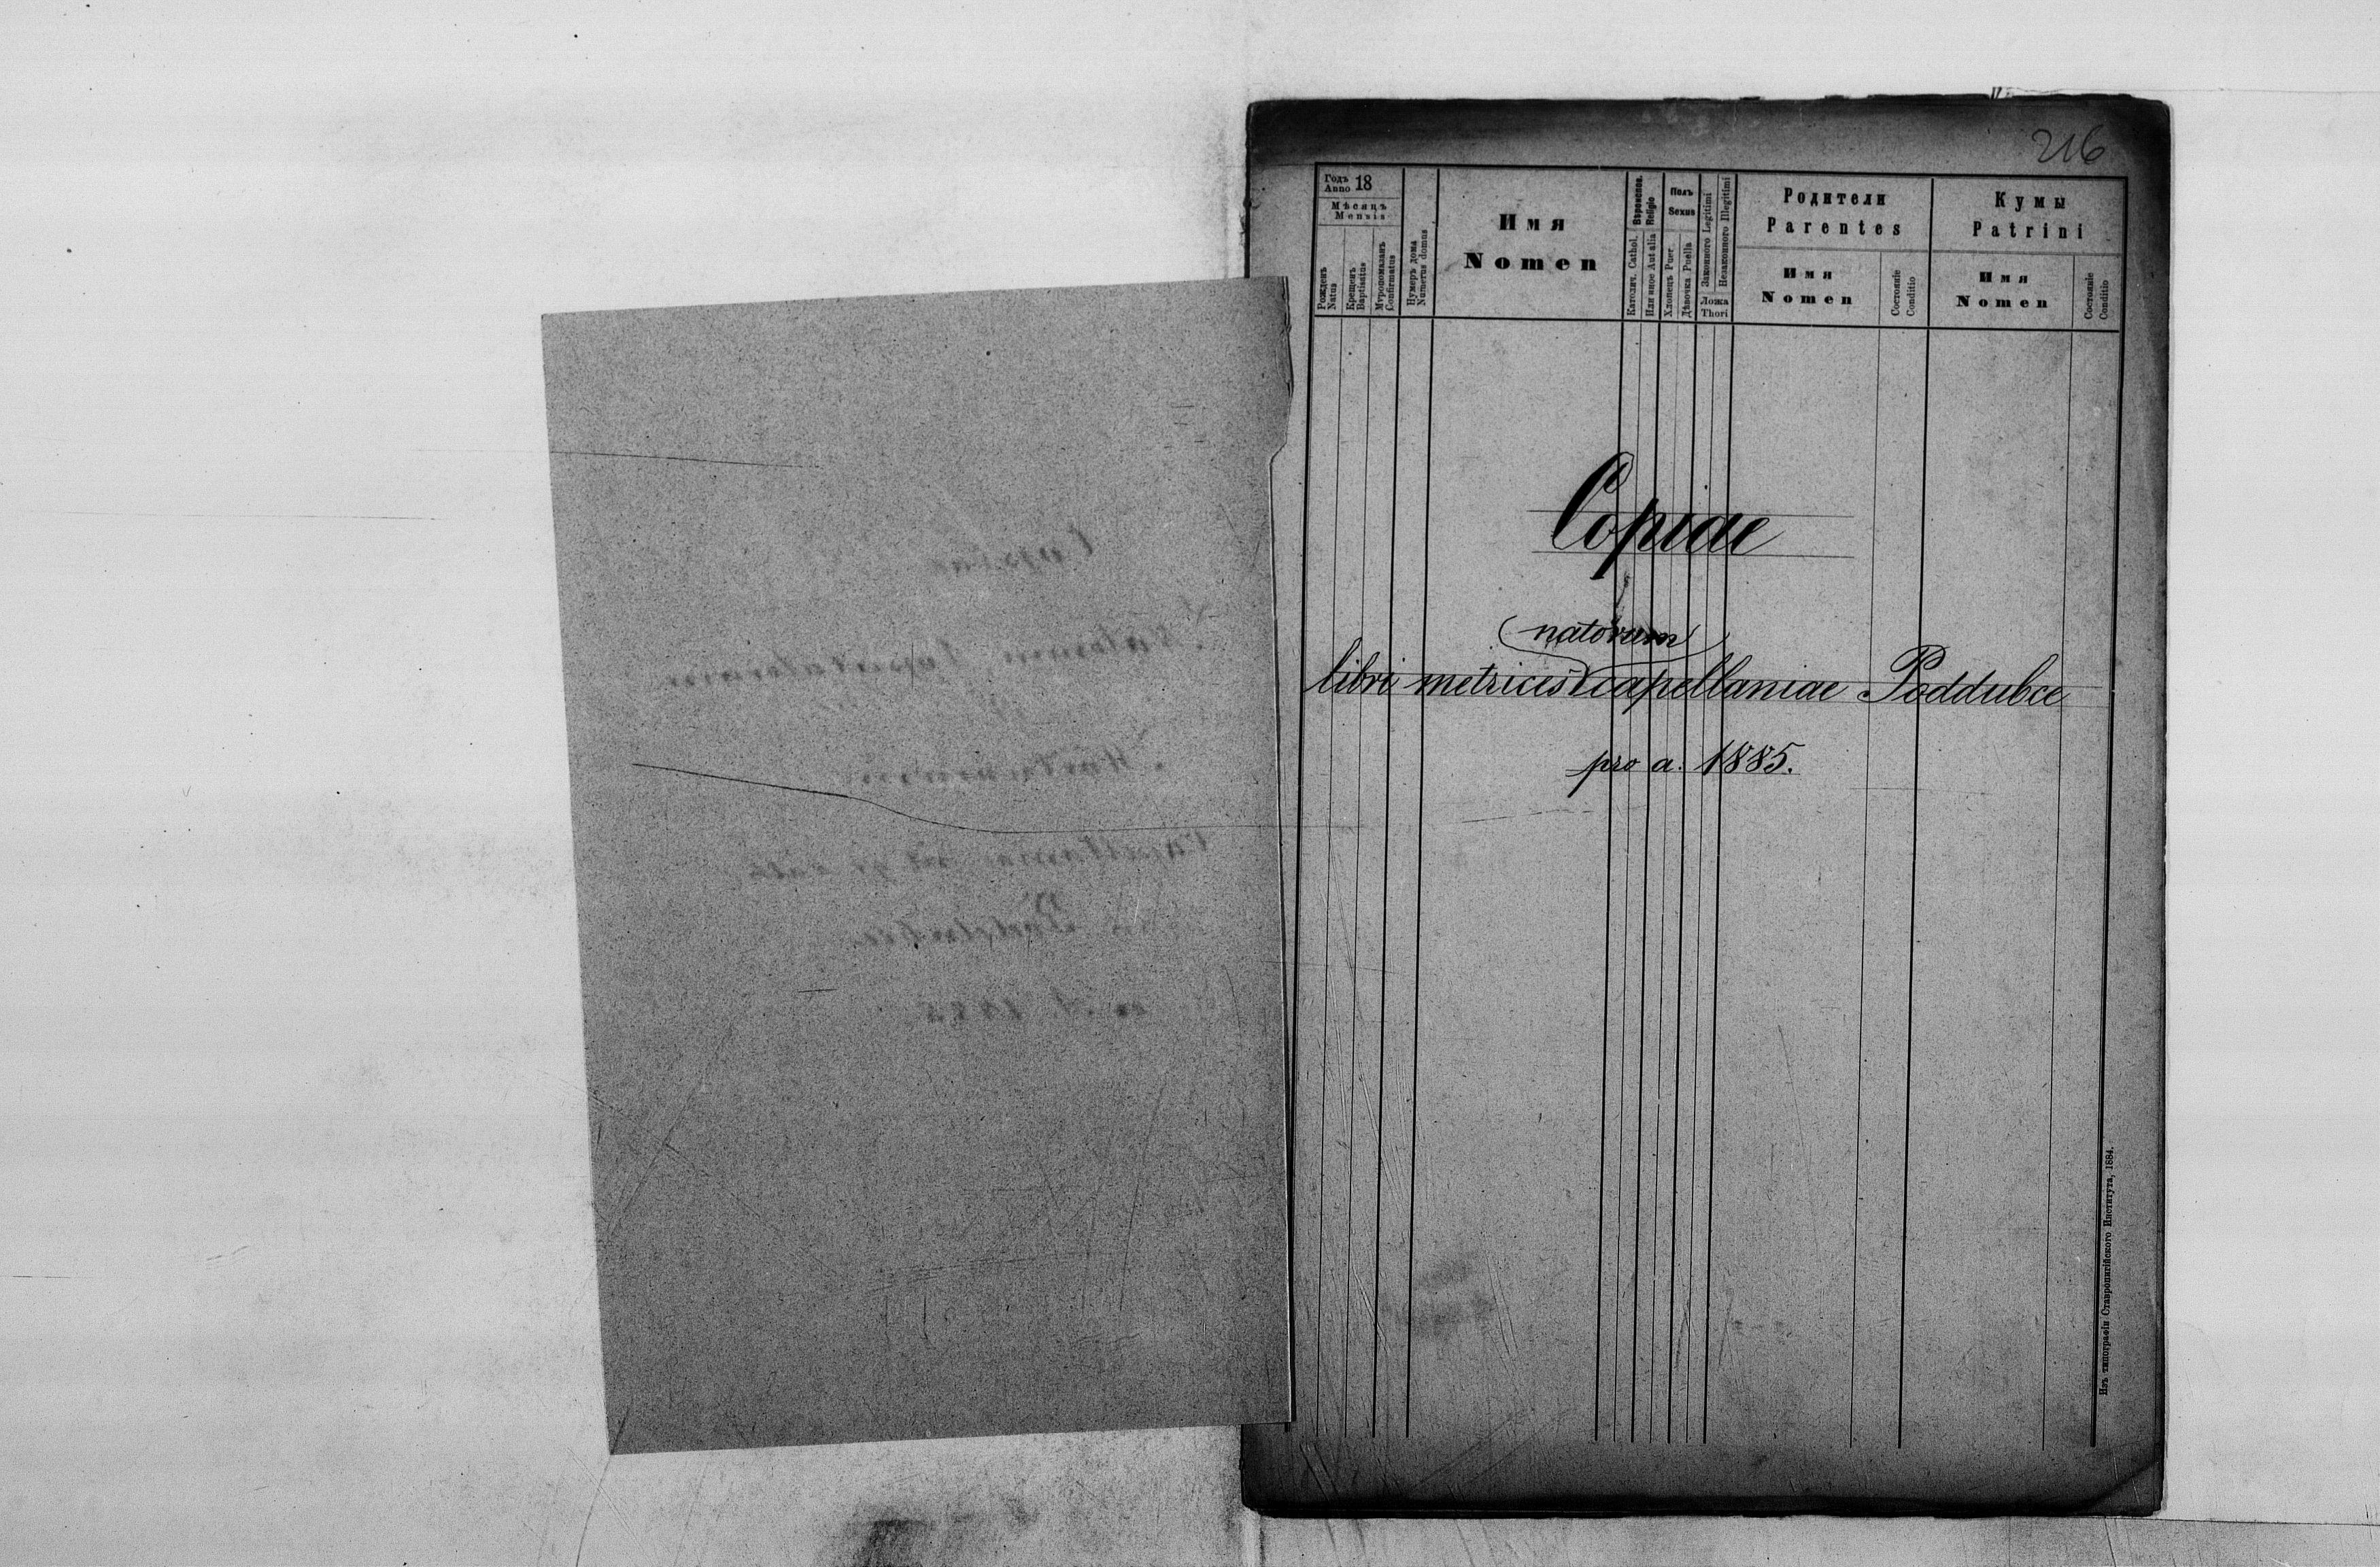 216
Годъ 18
Anno
Мѣсяцъ
Mensis
Рожденъ
Natus
Крещенъ
Baptisatus
Мѵропомазанъ
Confirmatus
Нумеръ дома
Numerus domus
Имя
Nomen
Вѣроиспов.
Religio
Католич. Cathol.
Или иное Aut alia
Полъ
Sexus
Хлопецъ Puer
Дѣвочка Puella
Законного Legitimi
Незаконного Illegitimi
Ложа
Thori
Родители
Parentes
Имя
Nomen
Состояніе
Conditio
Кумы
Patrini
Имя
Nomen
Состояніе
Conditio
Copiae
natorum
libri metrices capellaniae Poddubce
pro a. 1885.
Изъ типографіи Ставропигійского Института, 1884.
Copiae
Natorum, Copulatorum
et
Mortuorum
Capellaniae
Poddubce
1885